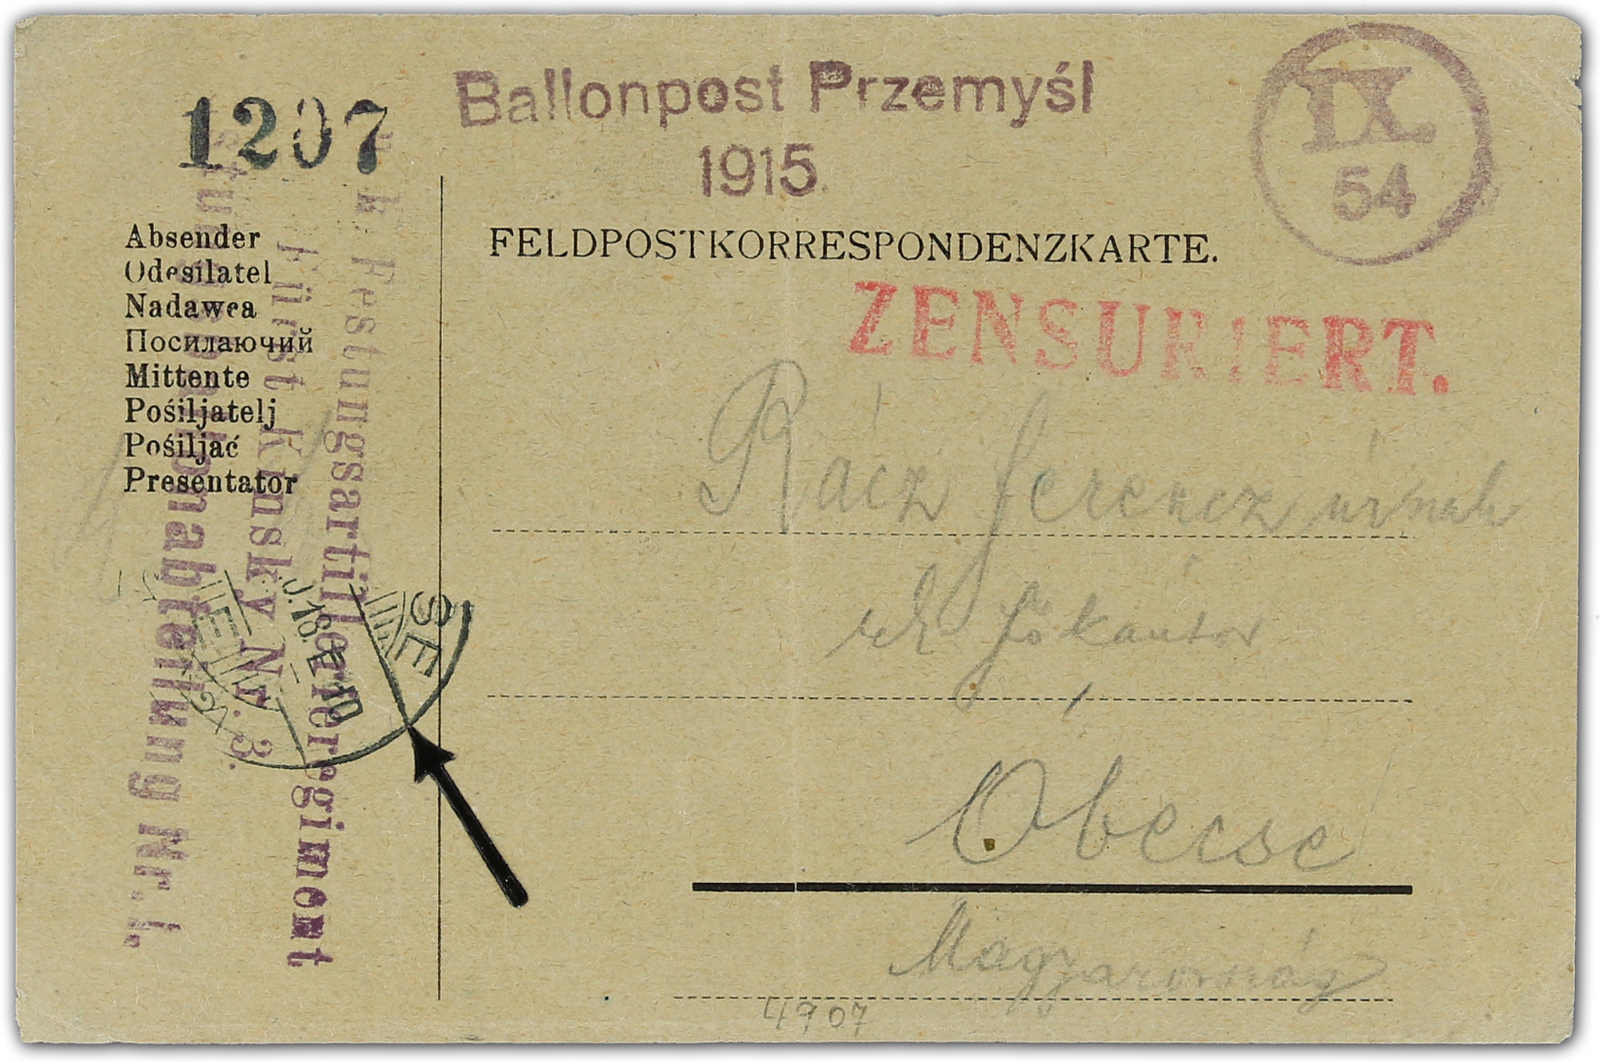 1207
Ballonpost Przemyśl
1915.
IX.
54
FELDPOSTKORRESPONDENZKARTE.
ZENSURIERT.
Absender
Odesílatel
Nadawca
Посилаючий
Mittente
Pošiljatelj
Pošiljać
Presentator
k. Festungsartillerieregiment
Fürst Kinsky Nr. 3.
abteilung Nr. 1.
Rácz Ferencz úrnak
rk főkántor
Óbecse
Magyarország
4707